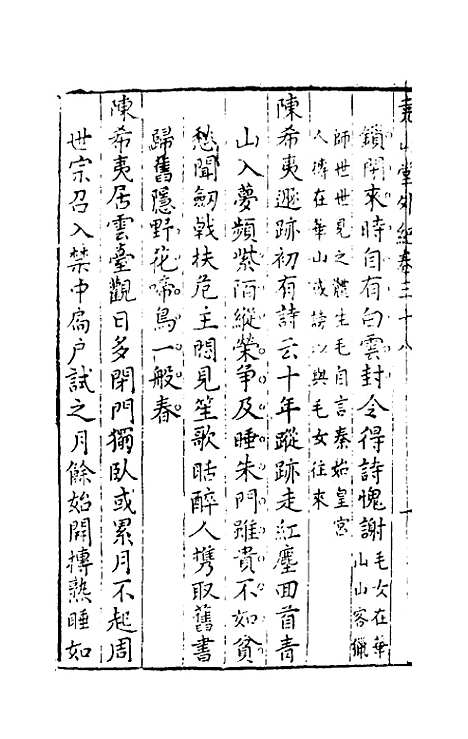 堯山堂外紀卷三十八
鎖開來時自有白雲封令得詩愧謝毛女在華
山山客獵
師世世見之體生毛自言秦始皇宮
人摶在華山詩以與毛女往來
陳希夷遯跡初有詩云十年蹤跡走紅塵回首青
山入夢頻紫陌縱榮争及睡朱門雖貴不如貧
愁聞劒戟扶危主悶見笙歌聒醉人攜取舊書
歸舊隱野花啼鳥一般春
陳希夷居雲臺觀日多閉門獨臥或累月不起周
世宗召入禁中扃戶試之月餘始開摶熟睡如